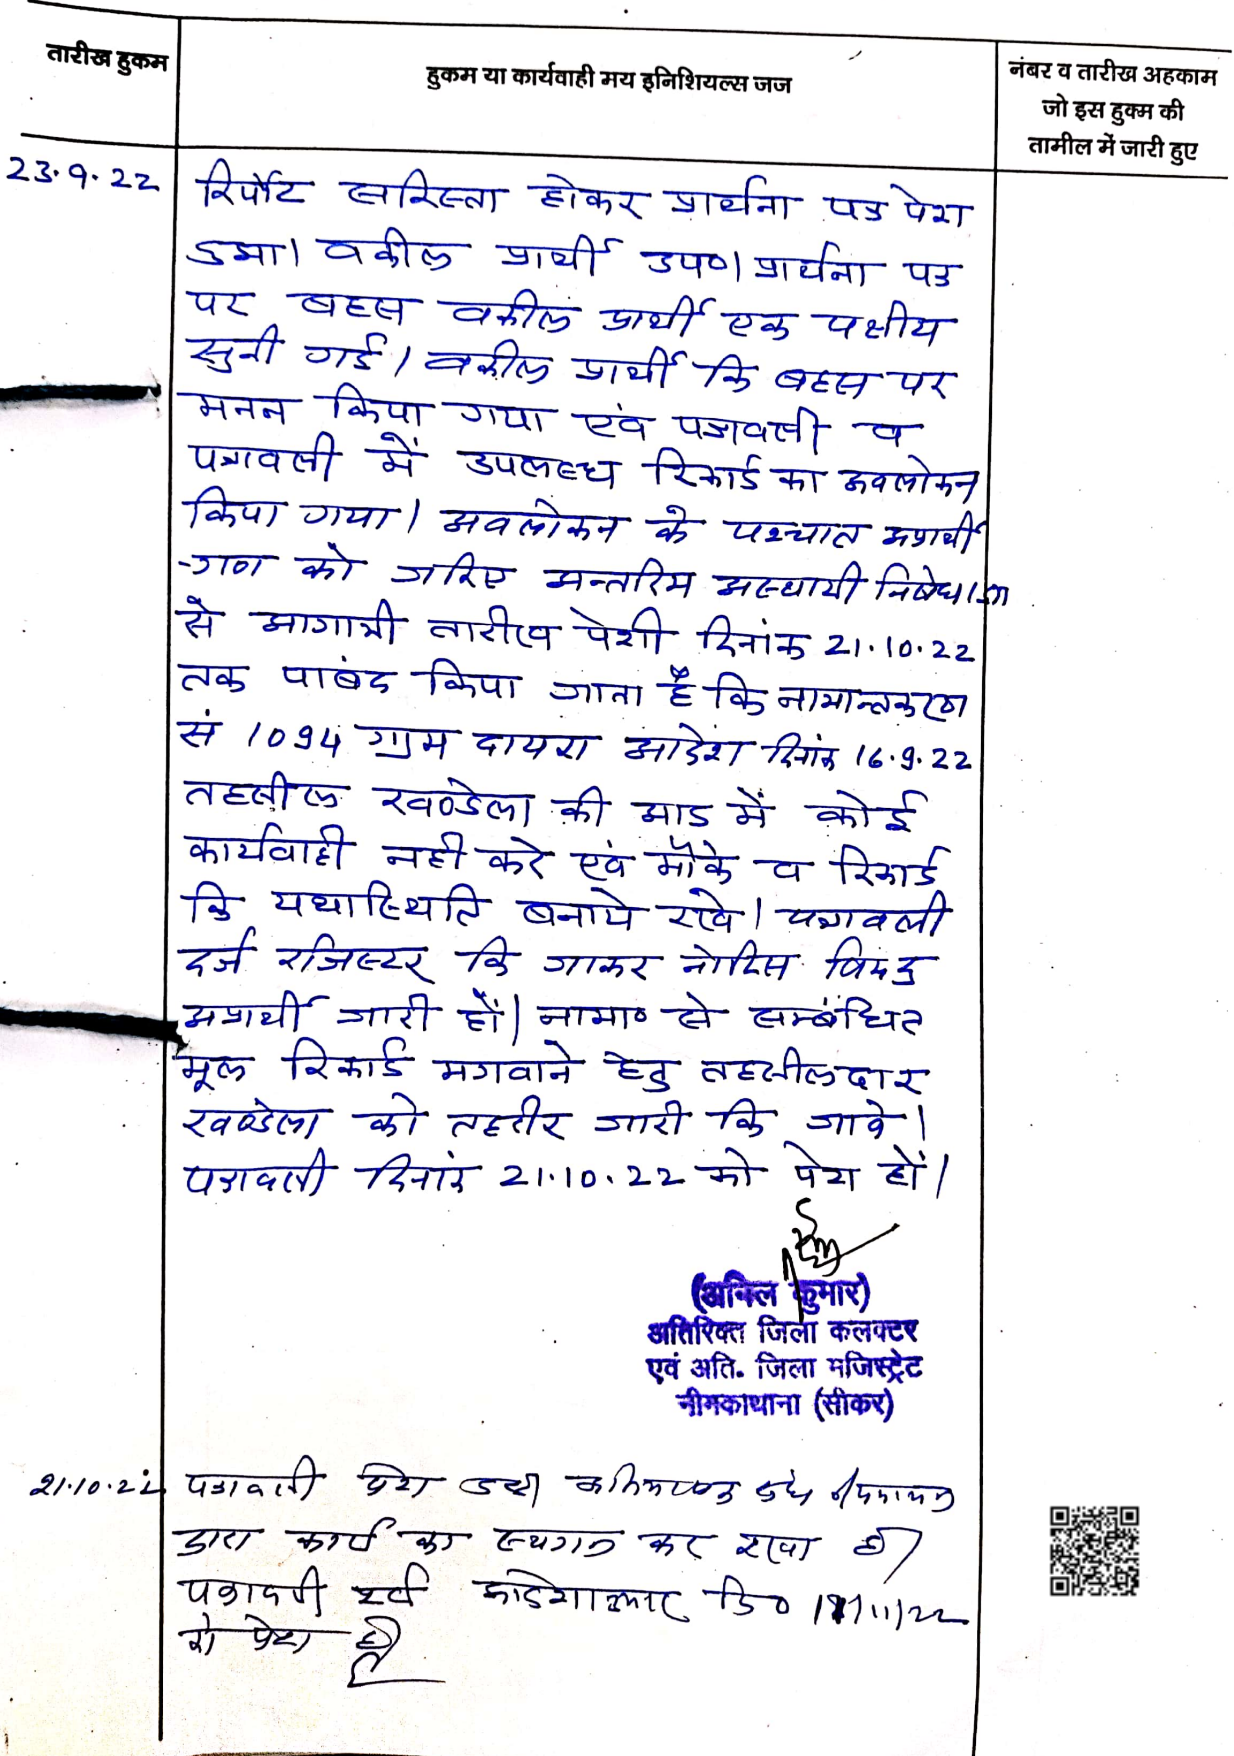 तारीख हुकम
हुकम या कार्यवाही मय इनिशियल्स जज
नंबर व तारीख अहकाम
जो इस हुक्म की
तामील में जारी हुए
23.9.22
रिर्पोट सरिस्ता होकर प्रार्थना पत्र पेश
हुआ। वकील प्रार्थी उप०। प्रार्थना पत्र
पर बहस वकील प्रार्थी एक पक्षीय
सुनी गई। वकील प्रार्थी कि बहस पर
मनन किया गया एवं पत्रावली व
पत्रावली में उपलब्ध रिकार्ड का अवलोकन
किया गया। अवलोकन के पश्चात अप्रार्थी
-गण को जरिए अन्तरिम अस्थायी निषेधाज्ञा
से आगामी तारीख पेशी दिनांक 21.10.22
तक पाबंद किया जाता है कि नामान्तकरण
सं 1094 ग्राम दायरा आदेश दिनांक 16.9.22
तहसील खण्डेला की आड में कोई
कार्यवाही नही करे एवं मौके व रिकार्ड
कि यथास्थिति बनाये रखे। पत्रावली
दर्ज रजिस्टर कि जाकर नोटिस विरूद्ध
अप्रार्थी जारी हों। नामा० से सम्बंधित
मूल रिकार्ड मगवाने हेतु तहसीलदार
खण्डेला को तहरीर जारी कि जावे।
पत्रावली दिनांक 21.10.22 को पेश हों।
(अनिल कुमार)
अतिरिक्त जिला कलक्टर
एवं अति. जिला मजिस्ट्रेट
नीमकाथाना (सीकर)
21.10.22
पत्रावली पेश हुई। संघ
द्वारा कार्य का स्थगन कर रखा है।
पत्रावली दि०
को पेश हो